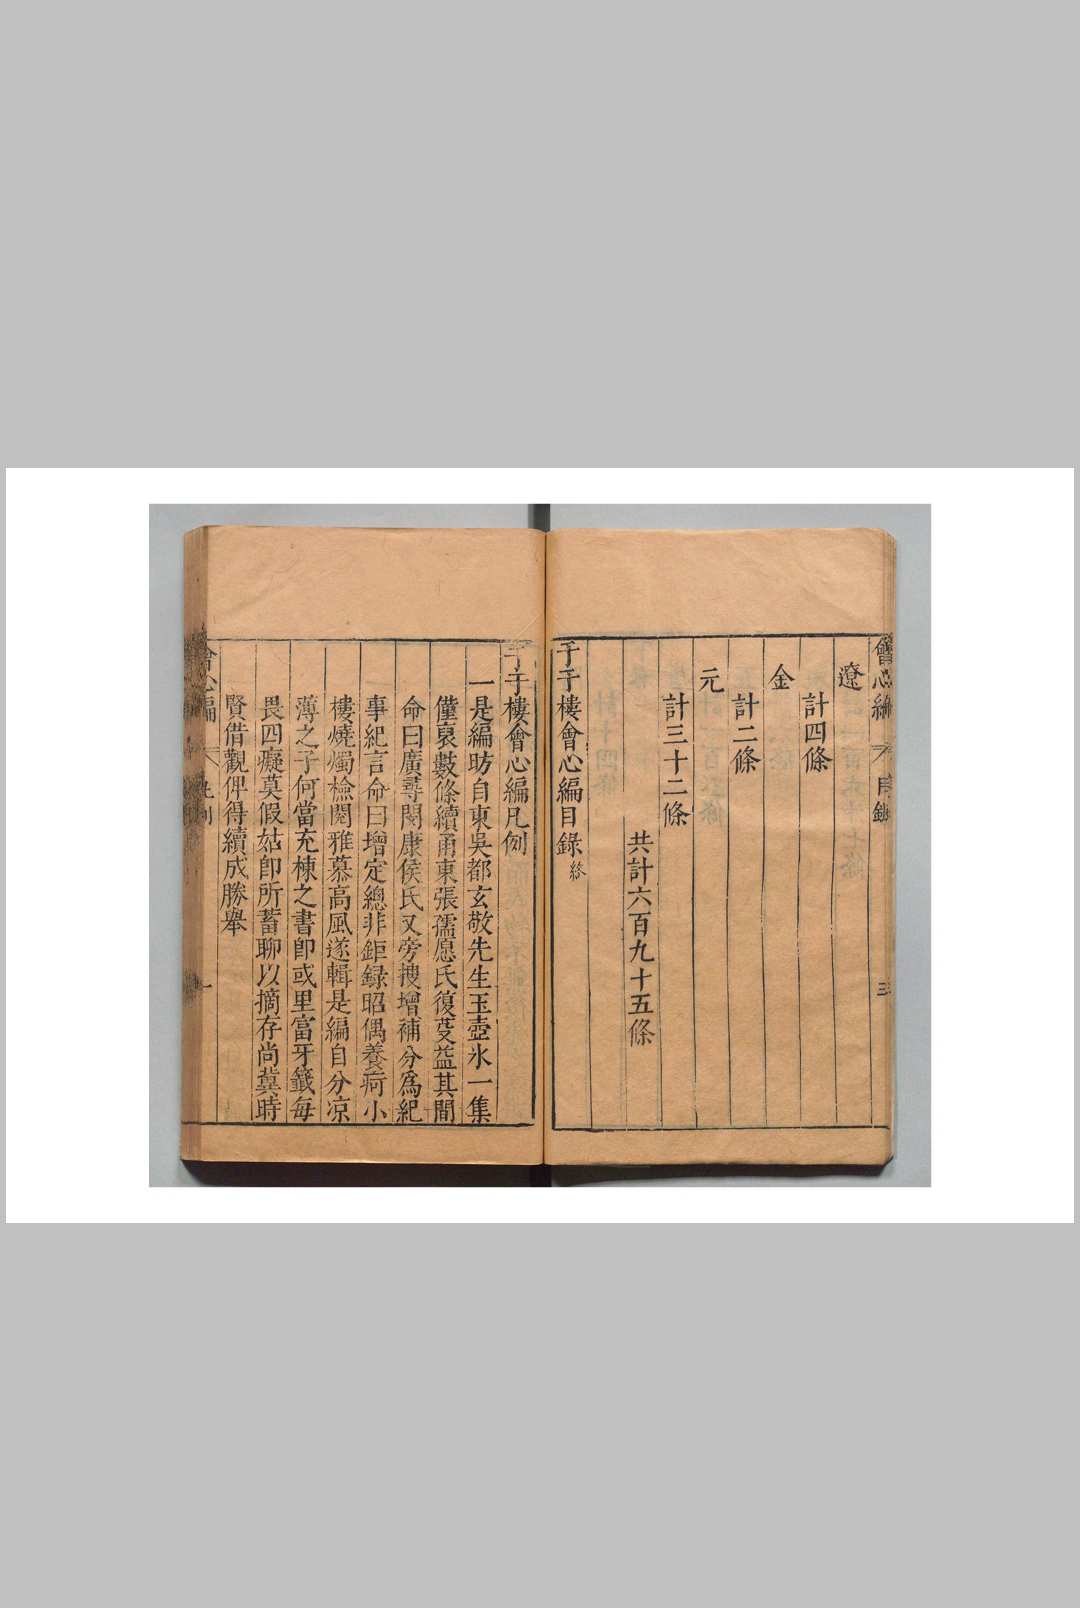 會心編 目錄 三
遼
計四條
金
計二條
元
計三十二條
共計六百九十五條
孑孑樓會心編目錄終
孑孑樓會心編凡例
一是編昉自東吳都玄敬先生玉壺氷一集
僅裒數條續甬東張孺愿氏復芟益其間
命曰廣尋閔康侯氏又旁搜增補分爲紀
事紀言命曰增定總非鉅録昭偶養疴小
樓燒燭檢閱雅慕高風遂輯是編自分凉
薄之子何當充棟之書即或里富牙籤每
畏四癡莫假姑即所蓄聊以摘存尚冀時
賢借觀俾得續成勝舉
會心編 凡例 一